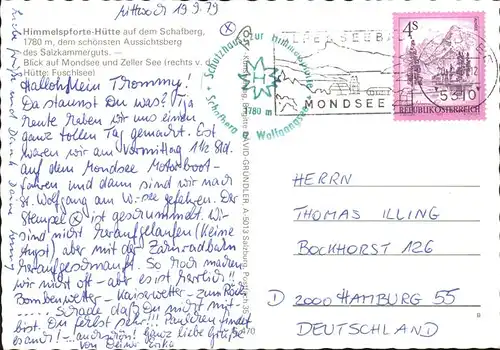 Mittwoch 19.9.79
Himmelspforte-Hütte auf dem Schafberg,
1780 m, dem schönsten Aussichtsberg
des Salzkammerguts. —
Blick auf Mondsee und Zeller See (rechts v. d.
Hütte: Fuschlsee)
Hallohllein Trommy!
Da staunst Du was? Tja
heute haben wir uns einen
ganz tollen Tag gemacht. Erst
waren wir am Vormittag 1½ Std.
auf dem Mondsee Motorboot-
fahren und dann sind wir nach
St. Wolfgang am W.-see gefahren. Der
Stempel ⓧ ist geschummelt. Wir
sind nicht heraufgelaufen (keine
Angst) aber mit der Zahnradbahn
heraufgeschnauft. So hoch machen
wir nicht oft - aber es ist herrlich!!
Bombenwetter - Kaiserwetter - zum
Schade daß Du nicht mit-
bist. Du fehlst sehr!!!
Ganz liebe Grüße
von Deiner Erika
Schutzhaus zur Himmelspforte
H
1780 m
Schafberg a. Wolfgangsee
MONDSEE
5310
4S
REPUBLIK ÖSTERREICH
DAVID-GRÜNDLER, A-5013 Salzburg, Postfach 35
HERRN
THOMAS ILLING
BOCKHORST 126
D 2000 HAMBURG 55
DEUTSCHLAND